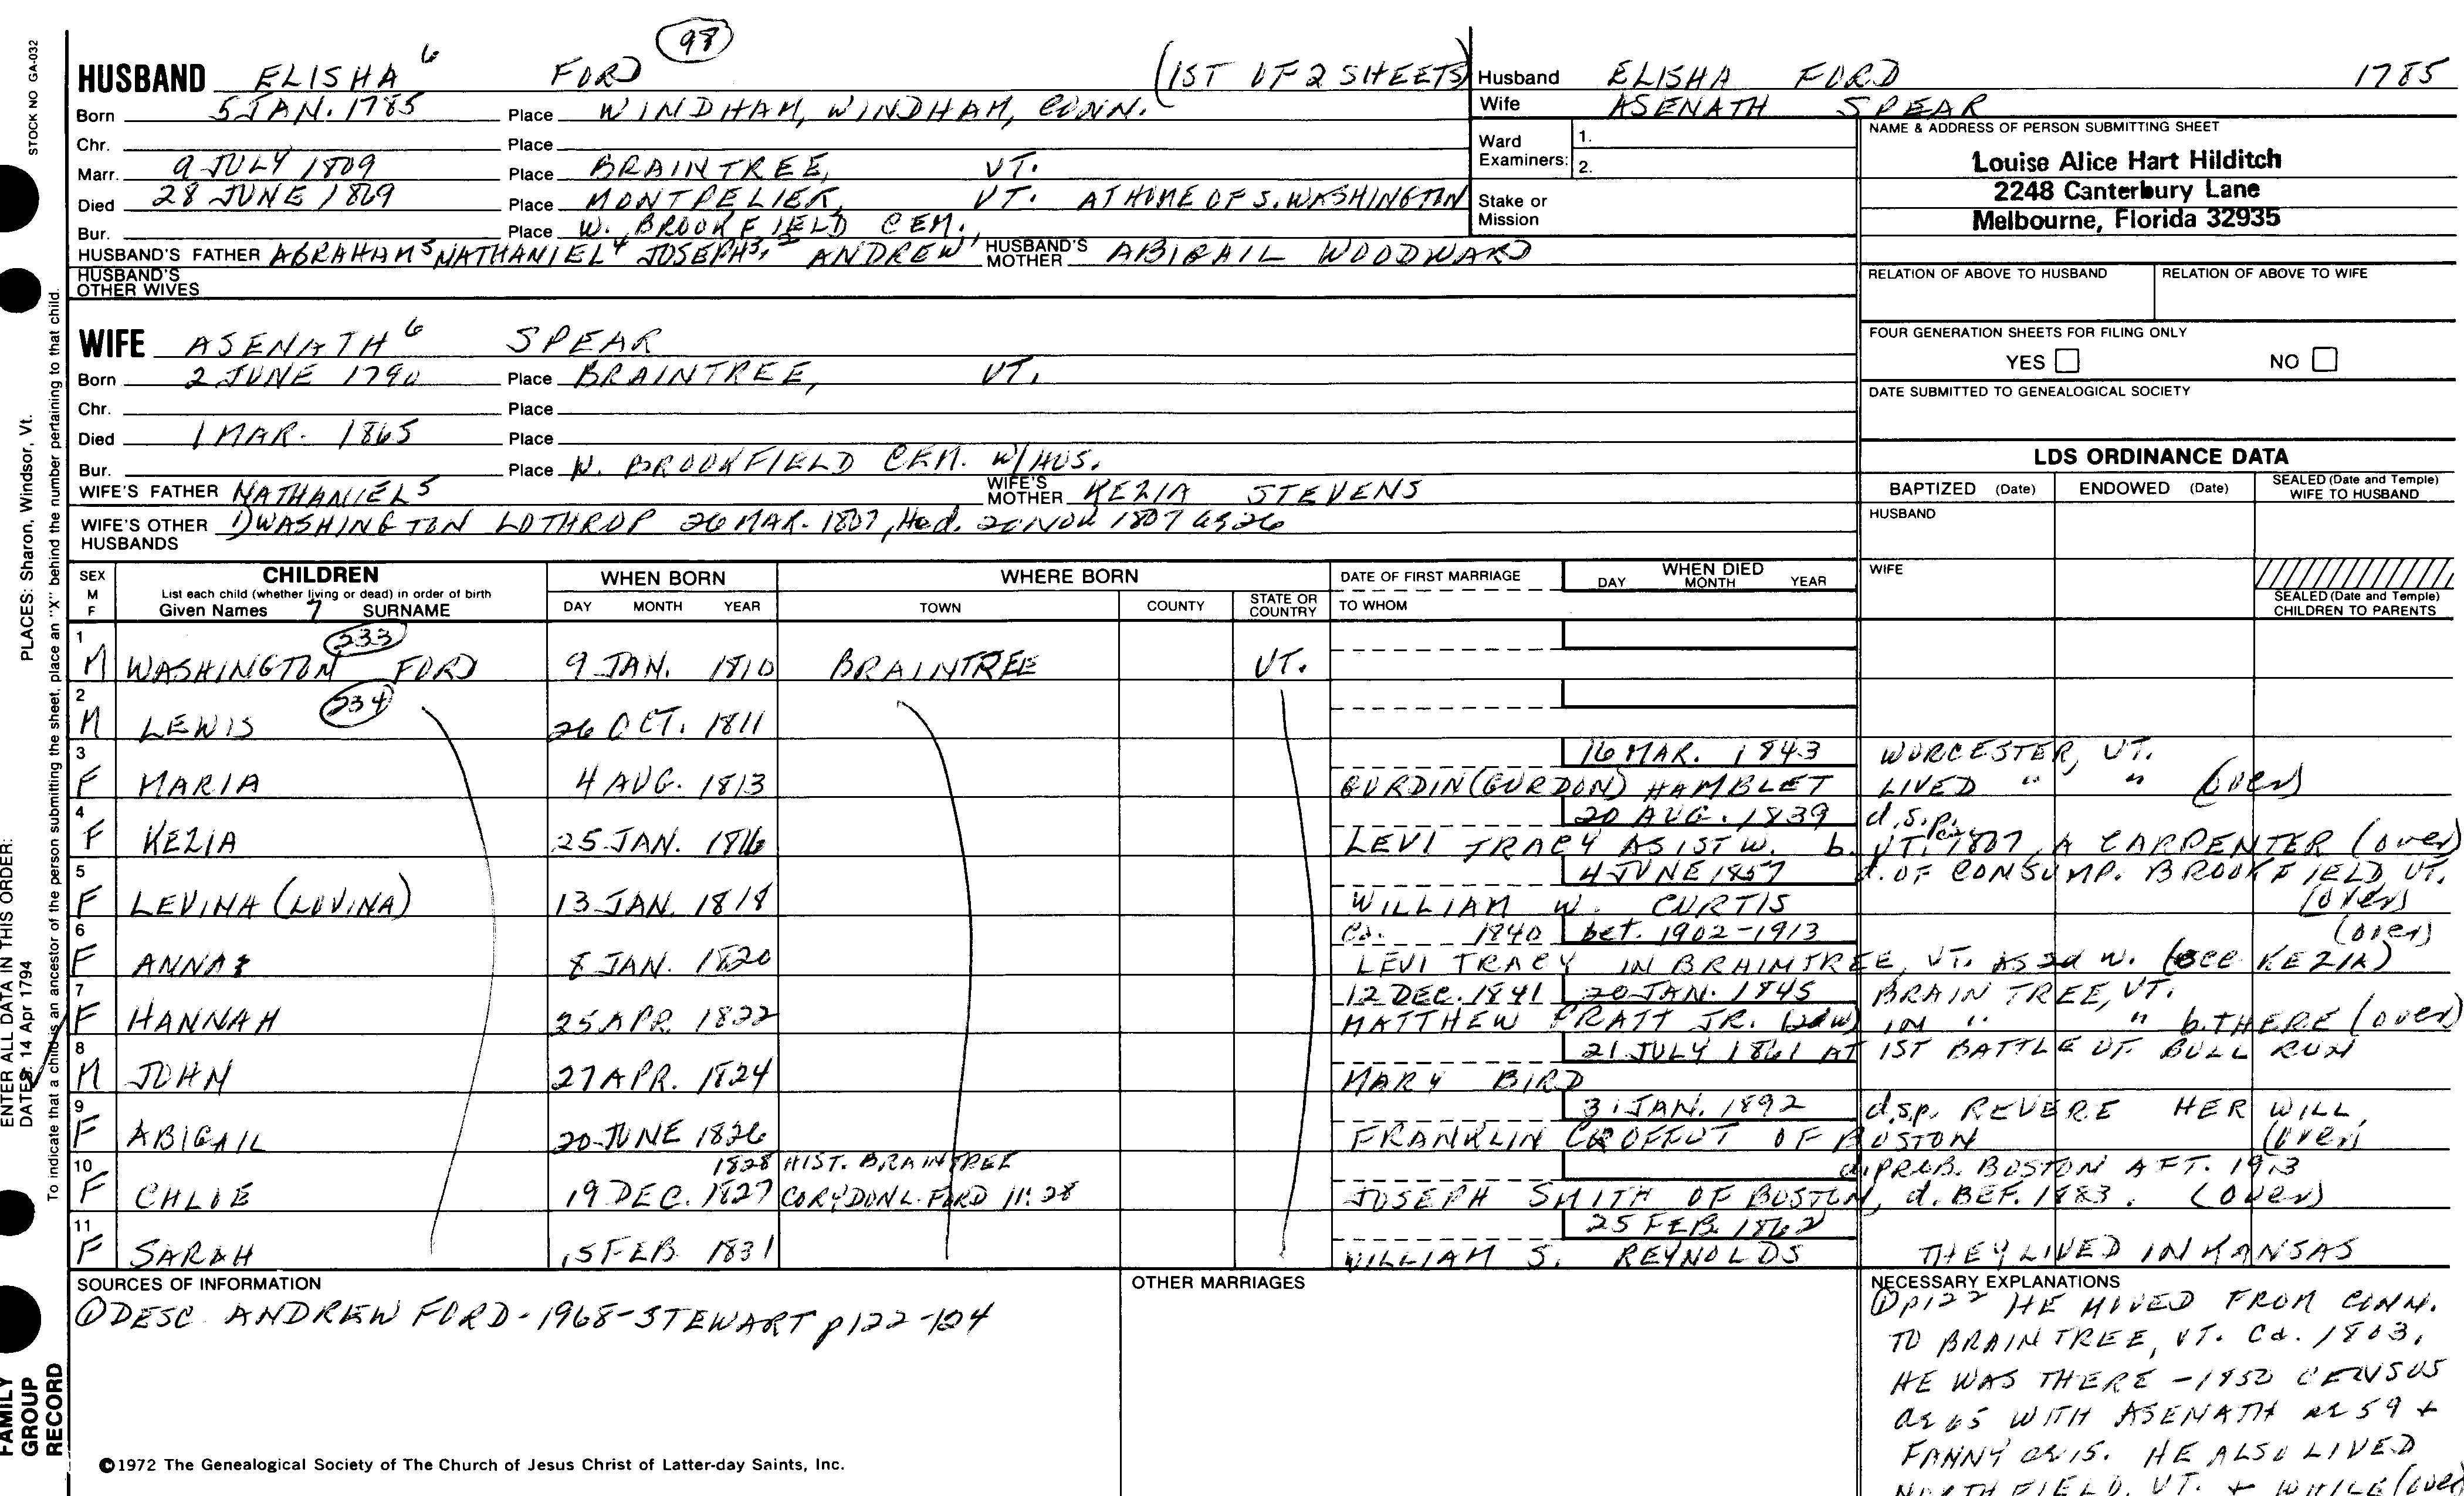 98
HUSBAND ELISHA 6 FORD (1ST OF 2 SHEETS)
Born 5 JAN. 1785 Place WINDHAM, WINDHAM, CONN.
Chr. Place
Marr. 9 JULY 1809 Place BRAINTREE, VT.
Died 28 JUNE 1869 Place MONTPELIER, VT. AT HOME OF S. WASHINGTON
Bur. Place W. BROOKFIELD CEM.
HUSBAND'S FATHER ABRAHAM 5 NATHANIEL 4 JOSEPH 3, 2 ANDREW 1 HUSBAND'S MOTHER ABIGAIL WOODWARD
HUSBAND'S OTHER WIVES
Husband ELISHA FORD 1785
Wife ASENATH SPEAR
Ward Examiners: 1.
2.
Stake or Mission
NAME & ADDRESS OF PERSON SUBMITTING SHEET
Louise Alice Hart Hilditch
2248 Canterbury Lane
Melbourne, Florida 32935
RELATION OF ABOVE TO HUSBAND RELATION OF ABOVE TO WIFE
FOUR GENERATION SHEETS FOR FILING ONLY
YES NO
DATE SUBMITTED TO GENEALOGICAL SOCIETY
WIFE ASENATH 6 SPEAR
Born 2 JUNE 1790 Place BRAINTREE, VT.
Chr. Place
Died 1 MAR. 1865 Place
Bur. Place W. BROOKFIELD CEM. W/HUS.
WIFE'S FATHER NATHANIEL 5 WIFE'S MOTHER KEZIA STEVENS
WIFE'S OTHER HUSBANDS 1) WASHINGTON LOTHROP 26 MAR. 1807, He d. 20 NOV 1807 ae 26
LDS ORDINANCE DATA
BAPTIZED (Date) ENDOWED (Date) SEALED (Date and Temple) WIFE TO HUSBAND
HUSBAND
WIFE
SEALED (Date and Temple) CHILDREN TO PARENTS
SEX M F CHILDREN WHEN BORN WHERE BORN DATE OF FIRST MARRIAGE WHEN DIED
List each child (whether living or dead) in order of birth DAY MONTH YEAR
Given Names 7 SURNAME DAY MONTH YEAR TOWN COUNTY STATE OR COUNTRY TO WHOM
1 233
M WASHINGTON FORD 9 JAN. 1810 BRAINTREE VT.
2 234
M LEWIS 26 OCT. 1811
3 16 MAR. 1843 WORCESTER, VT.
F MARIA 4 AUG. 1813 BURDIN (GURDON) HAMBLET LIVED " " (over)
4 20 AUG. 1839 d.s.p.
F KEZIA 25 JAN. 1816 LEVI TRACY AS 1ST W. b. VT. 1807, A CARPENTER (over)
5 4 JUNE 1857 d. OF CONSUMP. BROOKFIELD VT.
F LEVINA (LOVINA) 13 JAN. 1818 WILLIAM W. CURTIS (over)
6 Ca. 1840 bet. 1902-1913 (over)
F ANNA 8 JAN. 1820 LEVI TRACY IN BRAINTREE, VT. AS 2d W. (see KEZIA)
7 12 DEC. 1841 20 JAN. 1845 BRAINTREE, VT.
F HANNAH 25 APR 1822 MATTHEW PRATT JR. (2d W) IN " " b. THERE (over)
8 21 JULY 1861 AT 1ST BATTLE OF BULL RUN
M JOHN 27 APR. 1824 MARY BIRD
9 31 JAN. 1892 d.s.p. REVERE HER WILL
F ABIGAIL 20 JUNE 1826 FRANKLIN CROFFUT OF BOSTON (over)
10 1828 HIST. BRAINTREE d. PROB. BOSTON AFT. 1913
F CHLOE 19 DEC. 1827 CORYDON L. FORD 11:28 JOSEPH SMITH OF BOSTON, d. BEF. 1883. (over)
11 25 FEB. 1862
F SARAH 15 FEB 1831 WILLIAM S. REYNOLDS THEY LIVED IN KANSAS
SOURCES OF INFORMATION
① DESC. ANDREW FORD-1968-STEWART p122-124
OTHER MARRIAGES
NECESSARY EXPLANATIONS
① p122 HE MOVED FROM CONN.
TO BRAINTREE, VT. Ca. 1803,
HE WAS THERE - 1850 CENSUS
ae 65 WITH ASENATH ae 59 +
FANNY ae 15. HE ALSO LIVED
NORTHFIELD, VT. + WHILE (over)
©1972 The Genealogical Society of The Church of Jesus Christ of Latter-day Saints, Inc.
STOCK NO GA-032
PLACES: Sharon, Windsor, Vt.
ENTER ALL DATA IN THIS ORDER:
DATES: 14 Apr 1794
To indicate that a child is an ancestor of the person submitting the sheet, place an "X" behind the number pertaining to that child.
FAMILY
GROUP
RECORD